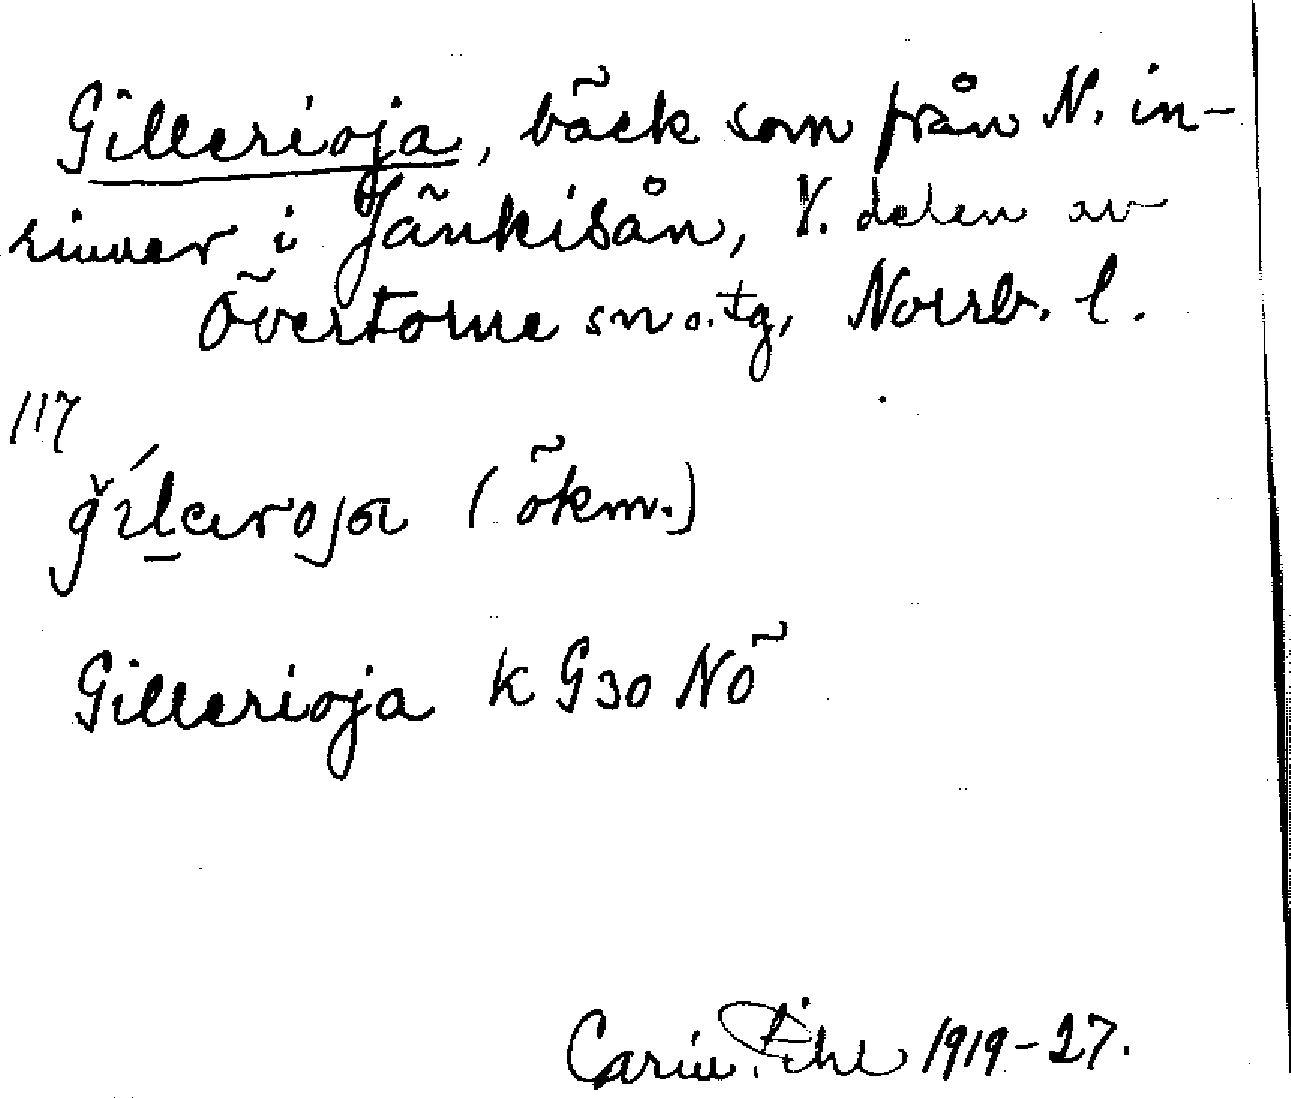 Gillerioja, bäck som från N. in-
rinner i Jänkisån, V. delen av
Övertorne sn o. tg, Norrb. l.
117
ǧíl̲erọja (ökm.)
Gillerioja k G30 NÖ
Carin Pihl 1919-27.